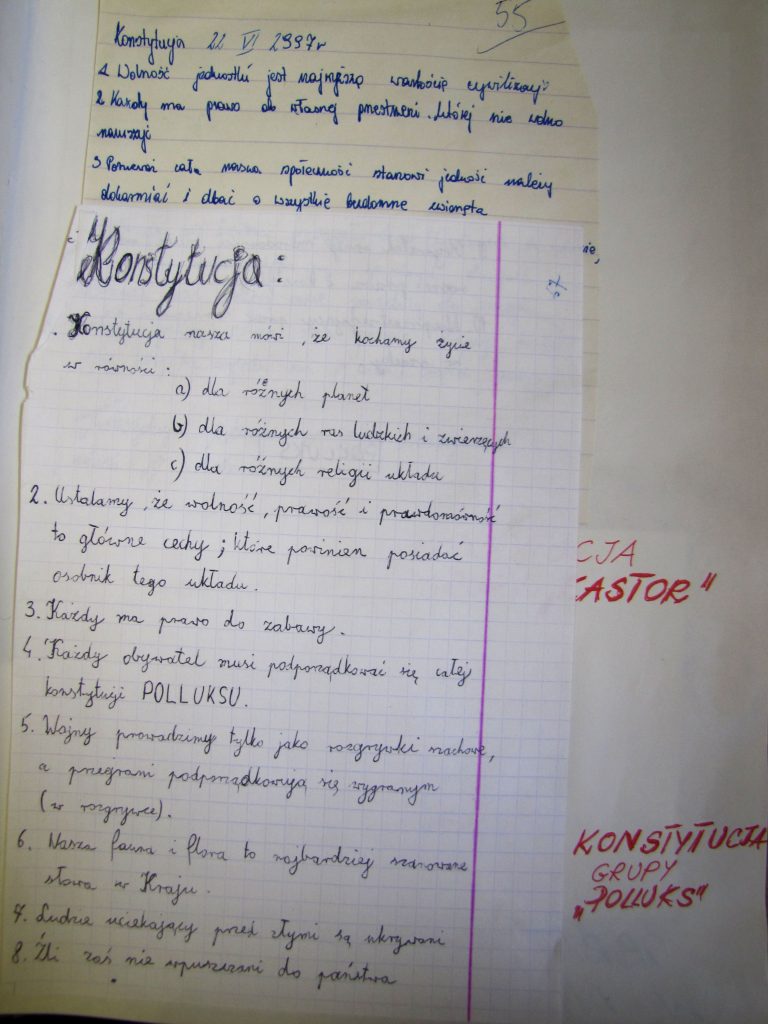 55
Konstytucja 22 VI 1997r
1. Wolność jednostki jest najwyższą wartością cywilizacji
2 Każdy ma prawo do własnej przestrzeni. której nie wolno
naruszać
3 Ponieważ cała nasza społeczność stanowi jedność należy
dokarmiać i dbać o wszystkie bezdomne zwierzęta
nie,
57
Konstytucja:
. Konstytucja nasza mówi, że kochamy życie
w równości:
a) dla różnych planet
b) dla różnych ras ludzkich i zwierzęcych
c) dla różnych religii układu
2. Ustalamy, że wolność, prawość i prawdomówność
to główne cechy; które powinien posiadać
osobnik tego układu.
3. Każdy ma prawo do zabawy.
4. Każdy obywatel musi podporządkować się całej
konstytucji POLLUKSU.
5. Wojny prowadzimy tylko jako rozgrywki szachowe,
a przegrani podporządkowują się wygranym
(w rozgrywce).
6. Nasza fauna i flora to najbardziej szanowane
słowa w Kraju.
7. Ludzie uciekający przed złymi są ukrywani
8. Źli zaś nie wpuszczani do państwa
CJA
KASTOR"
KONSTYTUCJA
GRUPY
„POLLUKS"